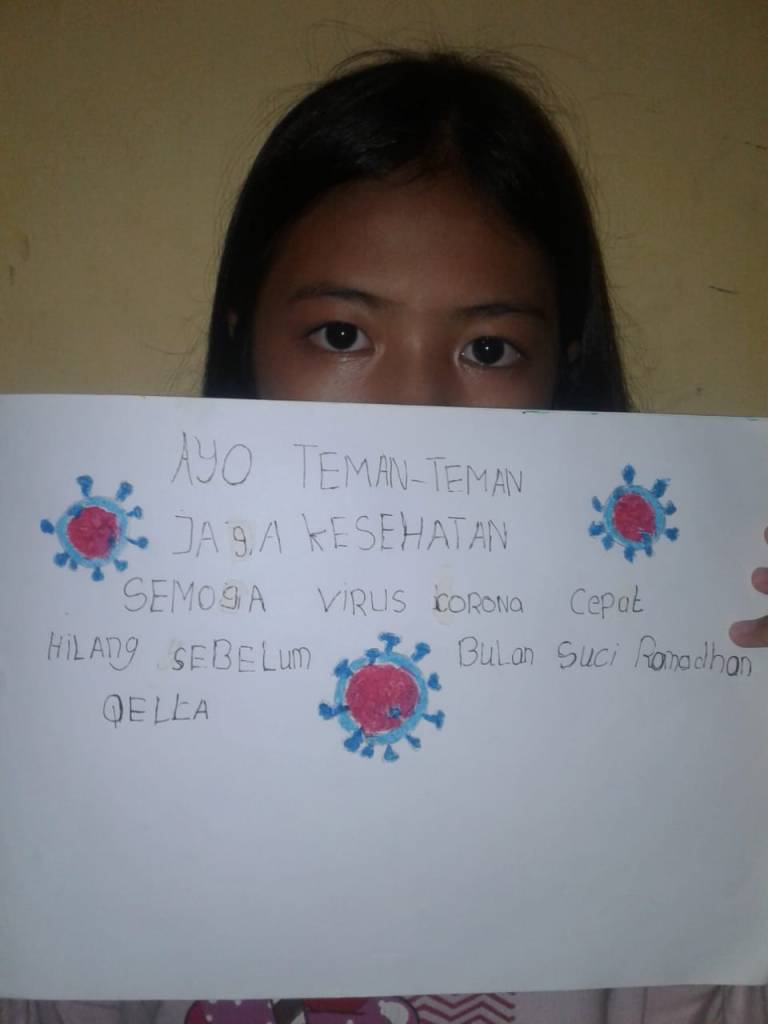 AYO TEMAN-TEMAN
JAgA KESEHATAN
SEMOgA ViRUS KORONa Cepat
HiLANg SEBELum BuLan Suci Ramadhan
QELLA